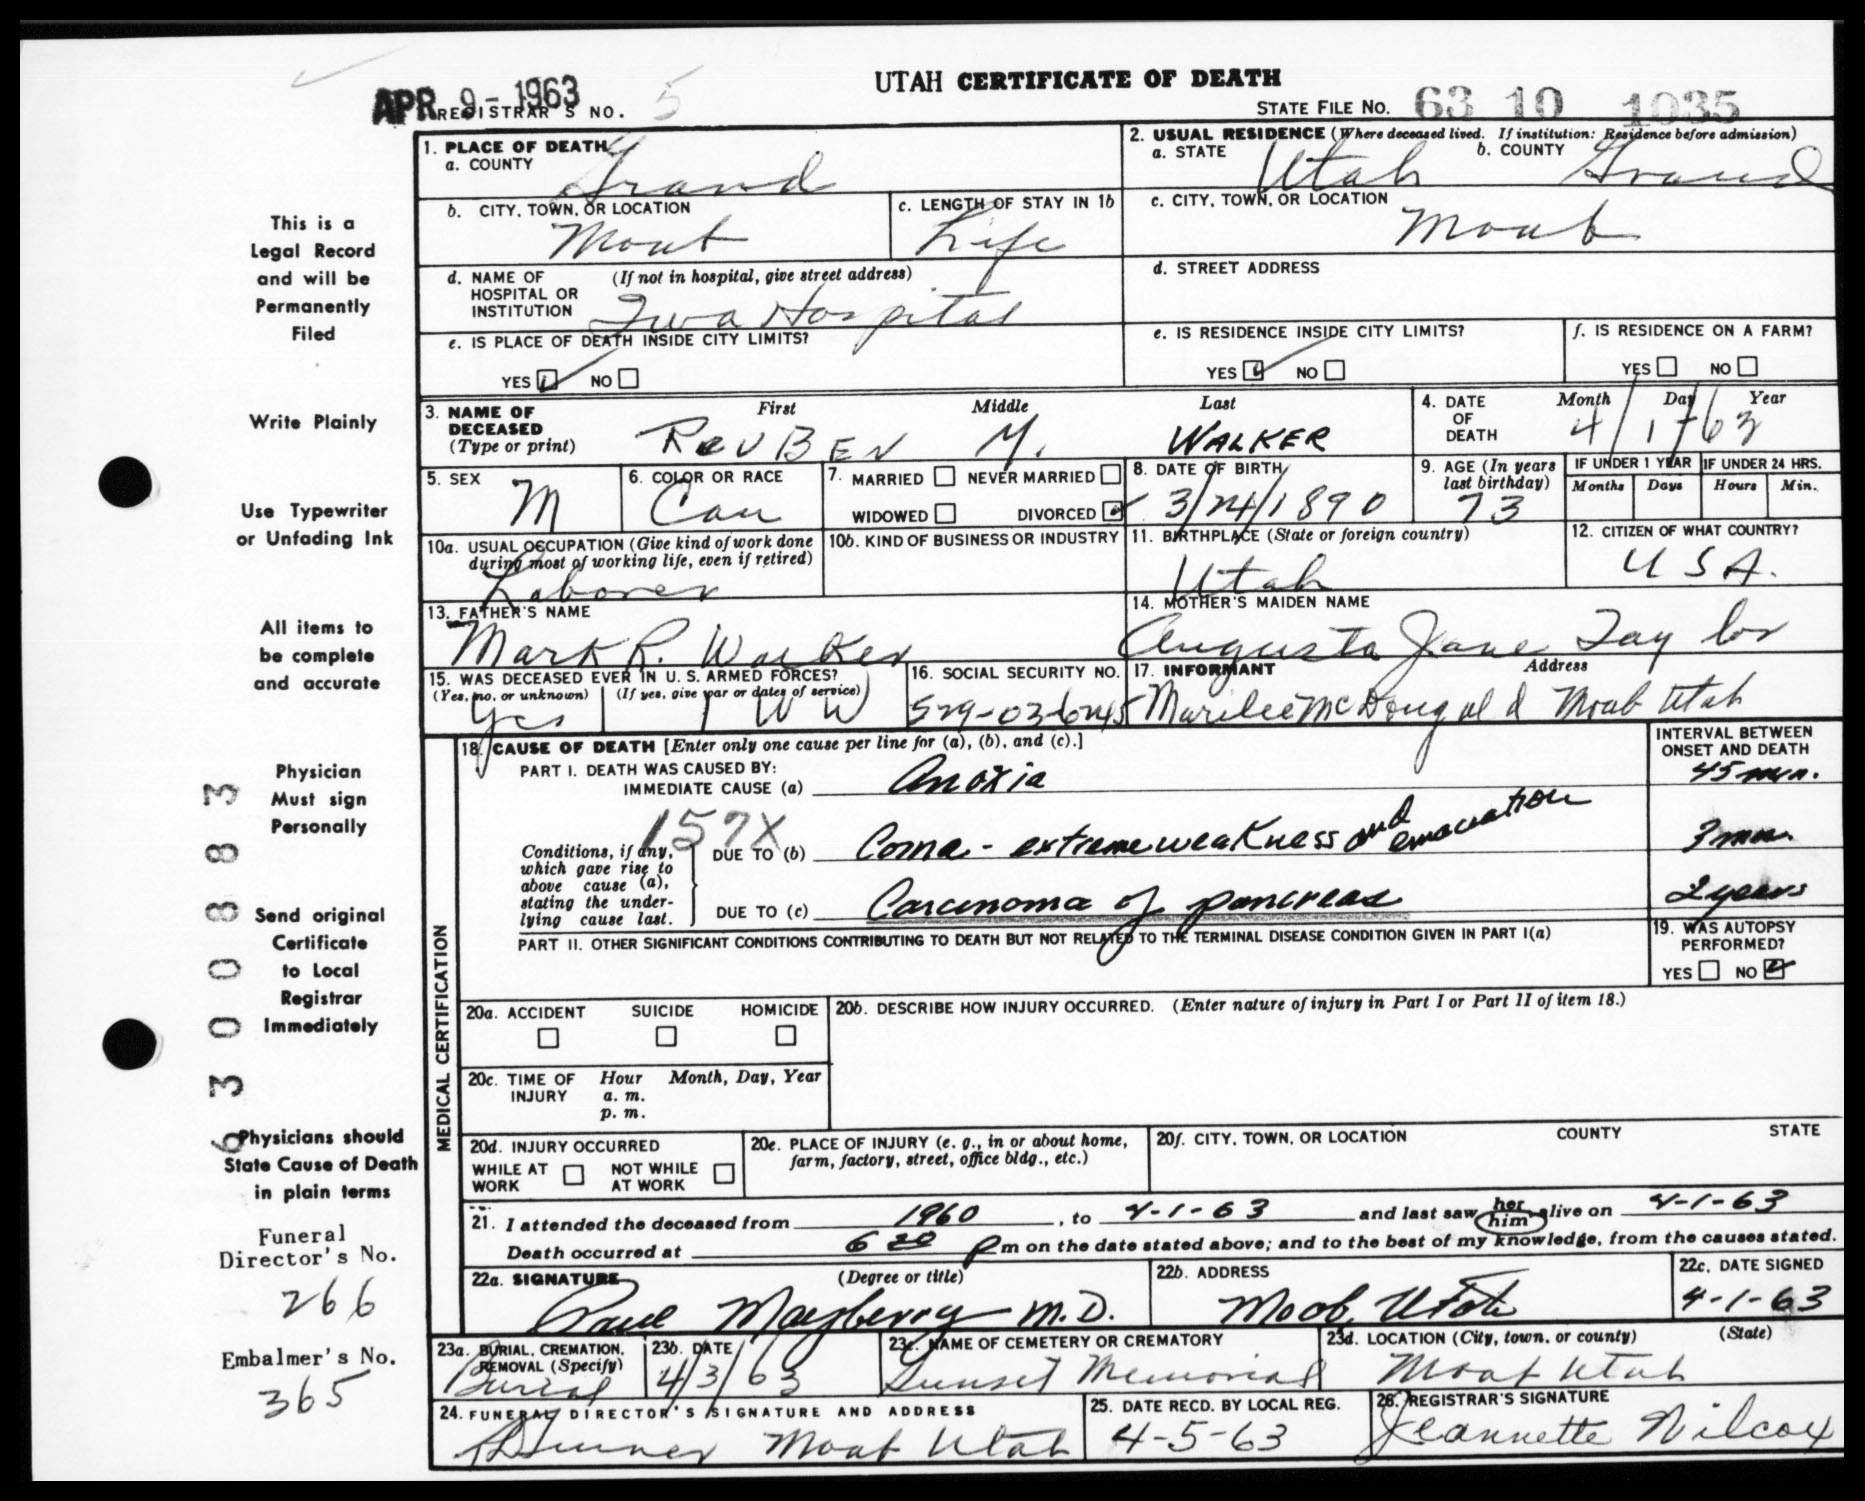 UTAH CERTIFICATE OF DEATH
APR 9 - 1963
REGISTRAR'S NO. 5
STATE FILE NO. 63 10 1035
This is a
Legal Record
and will be
Permanently
Filed
Write Plainly
Use Typewriter
or Unfading Ink
All items to
be complete
and accurate
Physician
Must sign
Personally
Send original
Certificate
to Local
Registrar
Immediately
Physicians should
State Cause of Death
in plain terms
Funeral
Director's No.
266
Embalmer's No.
365
6 3 0 0 8 8 3
1. PLACE OF DEATH
a. COUNTY Grand
2. USUAL RESIDENCE (Where deceased lived. If institution: Residence before admission)
a. STATE Utah b. COUNTY Grand
b. CITY, TOWN, OR LOCATION Moab
c. LENGTH OF STAY IN 1b Life
c. CITY, TOWN, OR LOCATION Moab
d. NAME OF HOSPITAL OR INSTITUTION (If not in hospital, give street address) Hospital
d. STREET ADDRESS
e. IS PLACE OF DEATH INSIDE CITY LIMITS?
YES NO
e. IS RESIDENCE INSIDE CITY LIMITS?
YES NO
f. IS RESIDENCE ON A FARM?
YES NO
3. NAME OF DECEASED (Type or print) First Middle Last
REUBEN M. WALKER
4. DATE OF DEATH Month Day Year
4/1/63
5. SEX M
6. COLOR OR RACE Cau
7. MARRIED NEVER MARRIED
WIDOWED DIVORCED
8. DATE OF BIRTH 3/24/1890
9. AGE (In years last birthday) 73
IF UNDER 1 YEAR Months Days
IF UNDER 24 HRS. Hours Min.
10a. USUAL OCCUPATION (Give kind of work done during most of working life, even if retired) Laborer
10b. KIND OF BUSINESS OR INDUSTRY
11. BIRTHPLACE (State or foreign country) Utah
12. CITIZEN OF WHAT COUNTRY? USA.
13. FATHER'S NAME Mark R. Walker
14. MOTHER'S MAIDEN NAME Augusta Jane Taylor
15. WAS DECEASED EVER IN U. S. ARMED FORCES?
(Yes, no, or unknown) (If yes, give war or dates of service)
Yes I WW
16. SOCIAL SECURITY NO. 529-03-6245
17. INFORMANT Address
Marilee McDougald Moab Utah
MEDICAL CERTIFICATION
18. CAUSE OF DEATH [Enter only one cause per line for (a), (b), and (c).]
INTERVAL BETWEEN ONSET AND DEATH
PART I. DEATH WAS CAUSED BY:
IMMEDIATE CAUSE (a) Anoxia 45 min.
157X
Conditions, if any, which gave rise to above cause (a), stating the underlying cause last.
DUE TO (b) Coma - extreme weakness and emaciation 3
DUE TO (c) Carcinoma of pancreas 2 years
PART II. OTHER SIGNIFICANT CONDITIONS CONTRIBUTING TO DEATH BUT NOT RELATED TO THE TERMINAL DISEASE CONDITION GIVEN IN PART I(a)
19. WAS AUTOPSY PERFORMED?
YES NO
20a. ACCIDENT SUICIDE HOMICIDE
20b. DESCRIBE HOW INJURY OCCURRED. (Enter nature of injury in Part I or Part II of item 18.)
20c. TIME OF INJURY Hour Month, Day, Year
a. m.
p. m.
20d. INJURY OCCURRED
WHILE AT WORK NOT WHILE AT WORK
20e. PLACE OF INJURY (e. g., in or about home, farm, factory, street, office bldg., etc.)
20f. CITY, TOWN, OR LOCATION COUNTY STATE
21. I attended the deceased from 1960, to 4-1-63 and last saw her him alive on 4-1-63
Death occurred at 6 20 Pm on the date stated above; and to the best of my knowledge, from the causes stated.
22a. SIGNATURE (Degree or title)
Paul Mayberry M.D.
22b. ADDRESS Moab, Utah
22c. DATE SIGNED 4-1-63
23a. BURIAL, CREMATION, REMOVAL (Specify) Burial
23b. DATE 4/3/63
23c. NAME OF CEMETERY OR CREMATORY Sunset Memorial
23d. LOCATION (City, town, or county) (State)
Moab Utah
24. FUNERAL DIRECTOR'S SIGNATURE AND ADDRESS
Moab Utah
25. DATE RECD. BY LOCAL REG. 4-5-63
26. REGISTRAR'S SIGNATURE Jeannette Wilcox